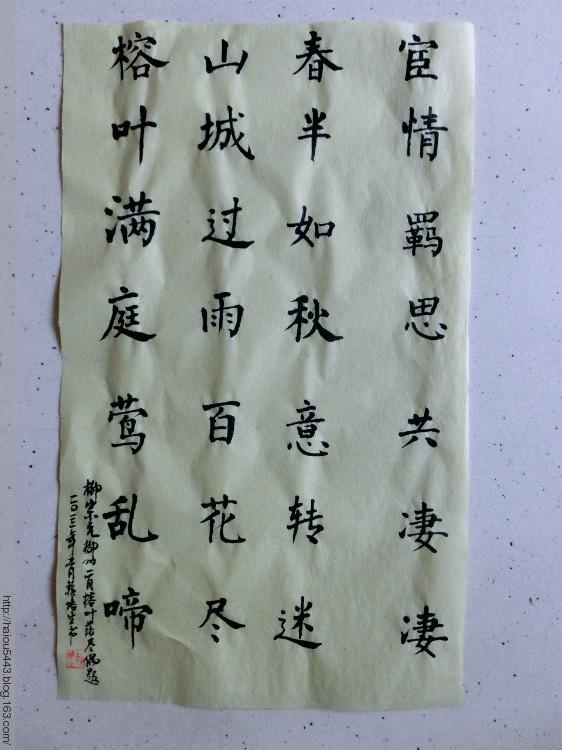 宦情羁思共凄凄
春半如秋意转迷
山城过雨百花尽
榕叶满庭莺乱啼
柳宗元柳州二月榕叶落尽偶题
二〇一三年 月 书
http://haiou5443.blog.163.com/